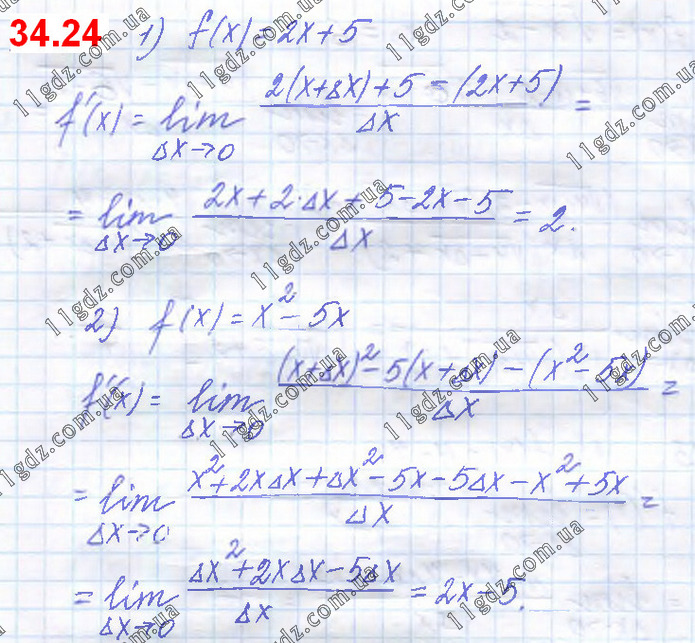 34.24 1) f(x)=2x+5
f'(x) = lim Δx→0 (2(x+Δx)+5-(2x+5))/Δx =
= lim Δx→0 (2x+2·Δx+5-2x-5)/Δx = 2.
2) f(x) = x²-5x
f'(x) = lim Δx→0 ((x+Δx)²-5(x+Δx)-(x²-5x))/Δx =
= lim Δx→0 (x²+2xΔx+Δx²-5x-5Δx-x²+5x)/Δx =
= lim Δx→0 (Δx²+2xΔx-5Δx)/Δx = 2x-5.
11gdz.com.ua
11gdz.com.ua
11gdz.com.ua
11gdz.com.ua
11gdz.com.ua
11gdz.com.ua
11gdz.com.ua
11gdz.com.ua
11gdz.com.ua
11gdz.com.ua
11gdz.com.ua
11gdz.com.ua